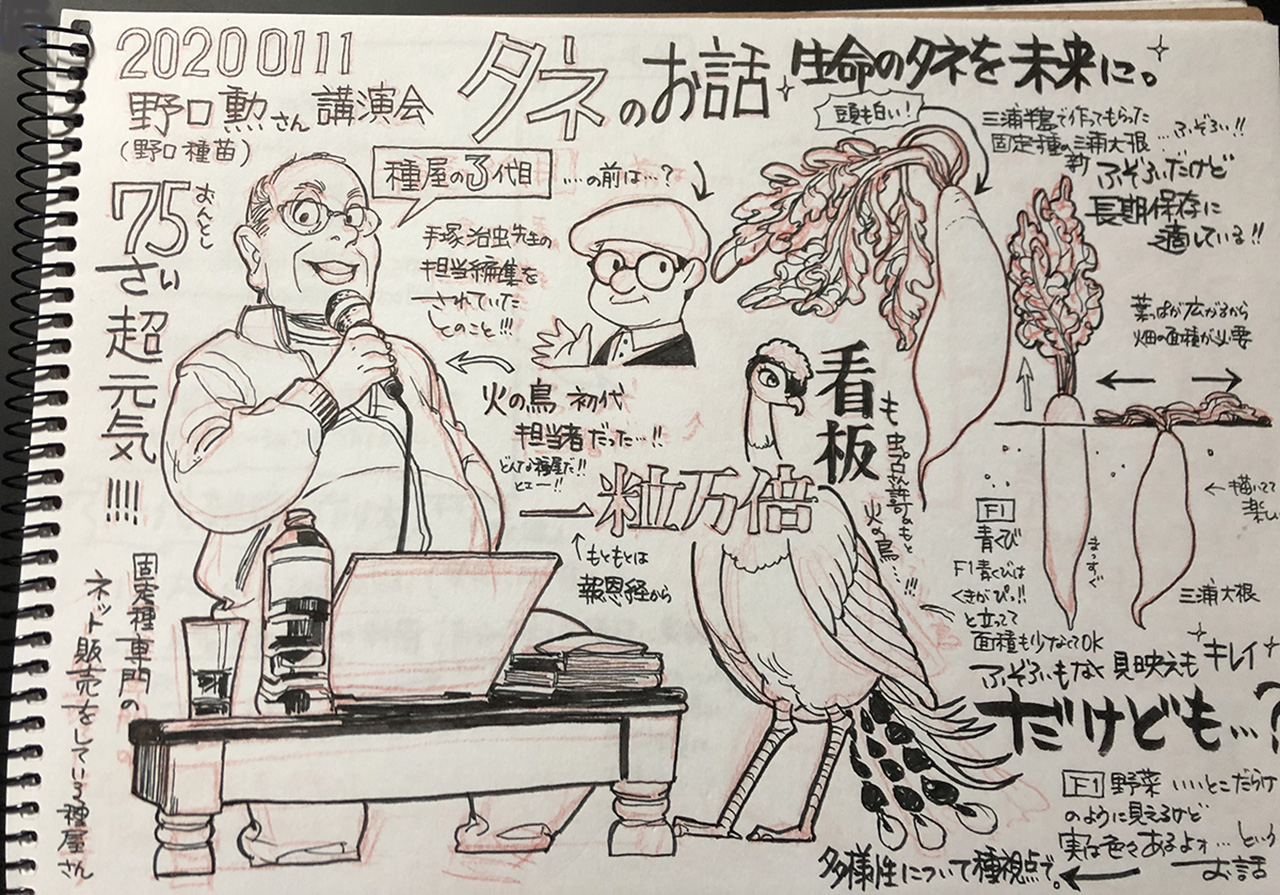 20200111
野口 勲さん 講演会
(野口種苗)
タネのお話
生命のタネを未来に。
75さい
おんとし
超元気!!!!
種屋の3代目
…の前は…?
手塚治虫先生の
担当編集を
されていた
とのこと!!!
火の鳥 初代
担当者だった…!!
どんな種屋だ!!
とエー!!
一粒万倍
↑もともとは
報恩経から
固定種専門の
ネット販売をしている種屋さん
看板
も虫プロさん許可のもと
火の鳥…!!!
頭も白い!
三浦半島で作ってもらった
固定種の三浦大根…ふぞろい!!
ふぞろいだけど
長期保存に
適している!!
葉っぱが広がるから
畑の面積が必要
←描いてて
楽しい
まっすぐ
三浦大根
F1
青くび
F1青くびは
くきがぴっ!!
と立ってて
面積も少なくてOK
ふぞろいもなく見映えもキレイ
だけども…?
F1 野菜 いいとこだらけ
のように見えるけど
実は色々あるよォ…という
お話
多様性について種視点で。